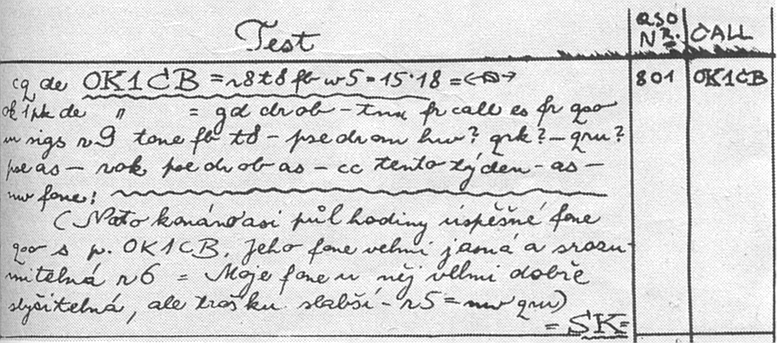 Test
QSO Nr. CALL
cq de OK1CB = r8 t8 fb w5 = 15·18 =
ok1pk de " = gd dr ob – tnx fr call es fr qso
ur sigs r9 tone fb t8 – pse dr om hw? qrk? – qru?
pse as – rok pse dr ob as – cc tento týden – as –
nw fone:
(Nato konáno asi půl hodiny úspěšné fone
qso s p. OK1CB. Jeho fone velmi jasná a srozu-
mitelná r6 = Moje fone u něj velmi dobře
slyšitelná, ale trošku slabší – r5 = nw qru)
= SK =
801 OK1CB